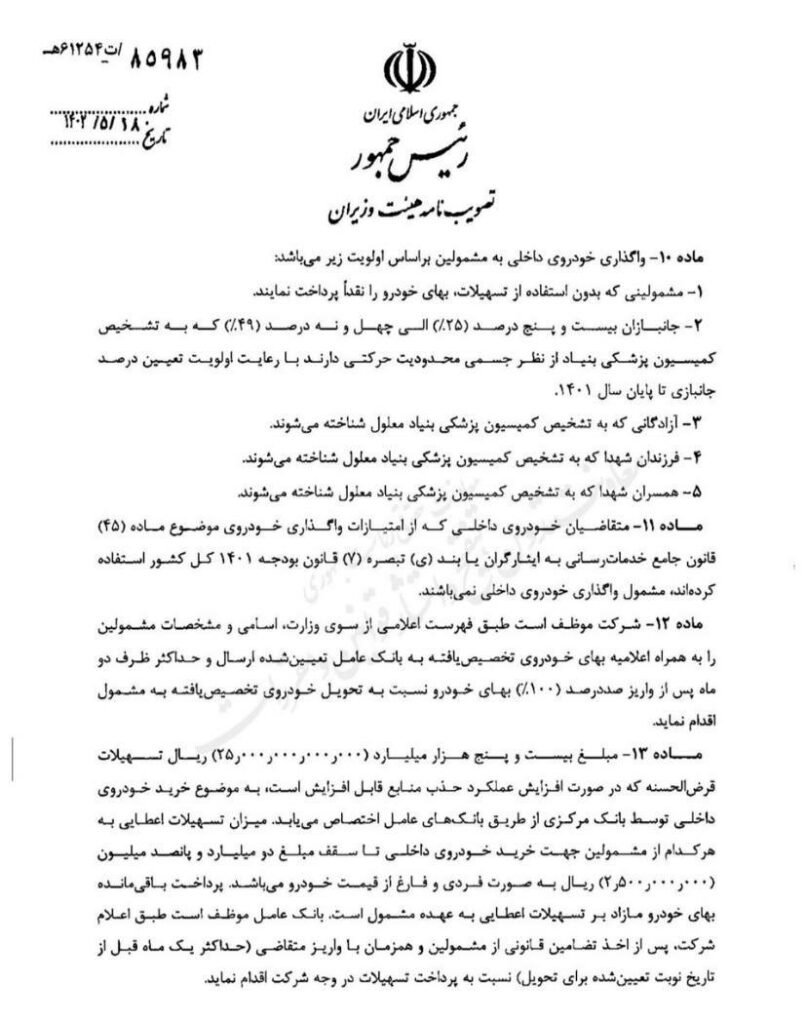 ۸۵۹۸۳/ت۶۱۲۵۴هـ
شماره
تاریخ ۱۴۰۲/۵/۱۸
جمهوری اسلامی ایران
رئیس جمهور
تصویب نامه هیئت وزیران
ماده ۱۰- واگذاری خودروی داخلی به مشمولین براساس اولویت زیر می‌باشد:
۱- مشمولینی که بدون استفاده از تسهیلات، بهای خودرو را نقداً پرداخت نمایند.
۲- جانبازان بیست و پنج درصد (۲۵٪) الی چهل و نه درصد (۴۹٪) که به تشخیص
کمیسیون پزشکی بنیاد از نظر جسمی محدودیت حرکتی دارند با رعایت اولویت تعیین درصد
جانبازی تا پایان سال ۱۴۰۱.
۳- آزادگانی که به تشخیص کمیسیون پزشکی بنیاد معلول شناخته می‌شوند.
۴- فرزندان شهدا که به تشخیص کمیسیون پزشکی بنیاد معلول شناخته می‌شوند.
۵- همسران شهدا که به تشخیص کمیسیون پزشکی بنیاد معلول شناخته می‌شوند.
ماده ۱۱- متقاضیان خودروی داخلی که از امتیازات واگذاری خودروی موضوع ماده (۴۵)
قانون جامع خدمات‌رسانی به ایثارگران یا بند (ی) تبصره (۷) قانون بودجه ۱۴۰۱ کل کشور استفاده
کرده‌اند، مشمول واگذاری خودروی داخلی نمی‌باشند.
ماده ۱۲- شرکت موظف است طبق فهرست اعلامی از سوی وزارت، اسامی و مشخصات مشمولین
را به همراه اعلامیه بهای خودروی تخصیص‌یافته به بانک عامل تعیین‌شده ارسال و حداکثر ظرف دو
ماه پس از واریز صددرصد (۱۰۰٪) بهای خودرو نسبت به تحویل خودروی تخصیص‌یافته به مشمول
اقدام نماید.
ماده ۱۳- مبلغ بیست و پنج هزار میلیارد (۲۵٫۰۰۰٫۰۰۰٫۰۰۰٫۰۰۰) ریال تسهیلات
قرض‌الحسنه که در صورت افزایش عملکرد حذب منابع قابل افزایش است، به موضوع خرید خودروی
داخلی توسط بانک مرکزی از طریق بانک‌های عامل اختصاص می‌یابد. میزان تسهیلات اعطایی به
هرکدام از مشمولین جهت خرید خودروی داخلی تا سقف مبلغ دو میلیارد و پانصد میلیون
(۲٫۵۰۰٫۰۰۰٫۰۰۰) ریال به صورت فردی و فارغ از قیمت خودرو می‌باشد. پرداخت باقی‌مانده
بهای خودرو مازاد بر تسهیلات اعطایی به عهده مشمول است. بانک عامل موظف است طبق اعلام
شرکت، پس از اخذ تضامین قانونی از مشمولین و همزمان با واریز متقاضی (حداکثر یک ماه قبل از
تاریخ نوبت تعیین‌شده برای تحویل) نسبت به پرداخت تسهیلات در وجه شرکت اقدام نماید.